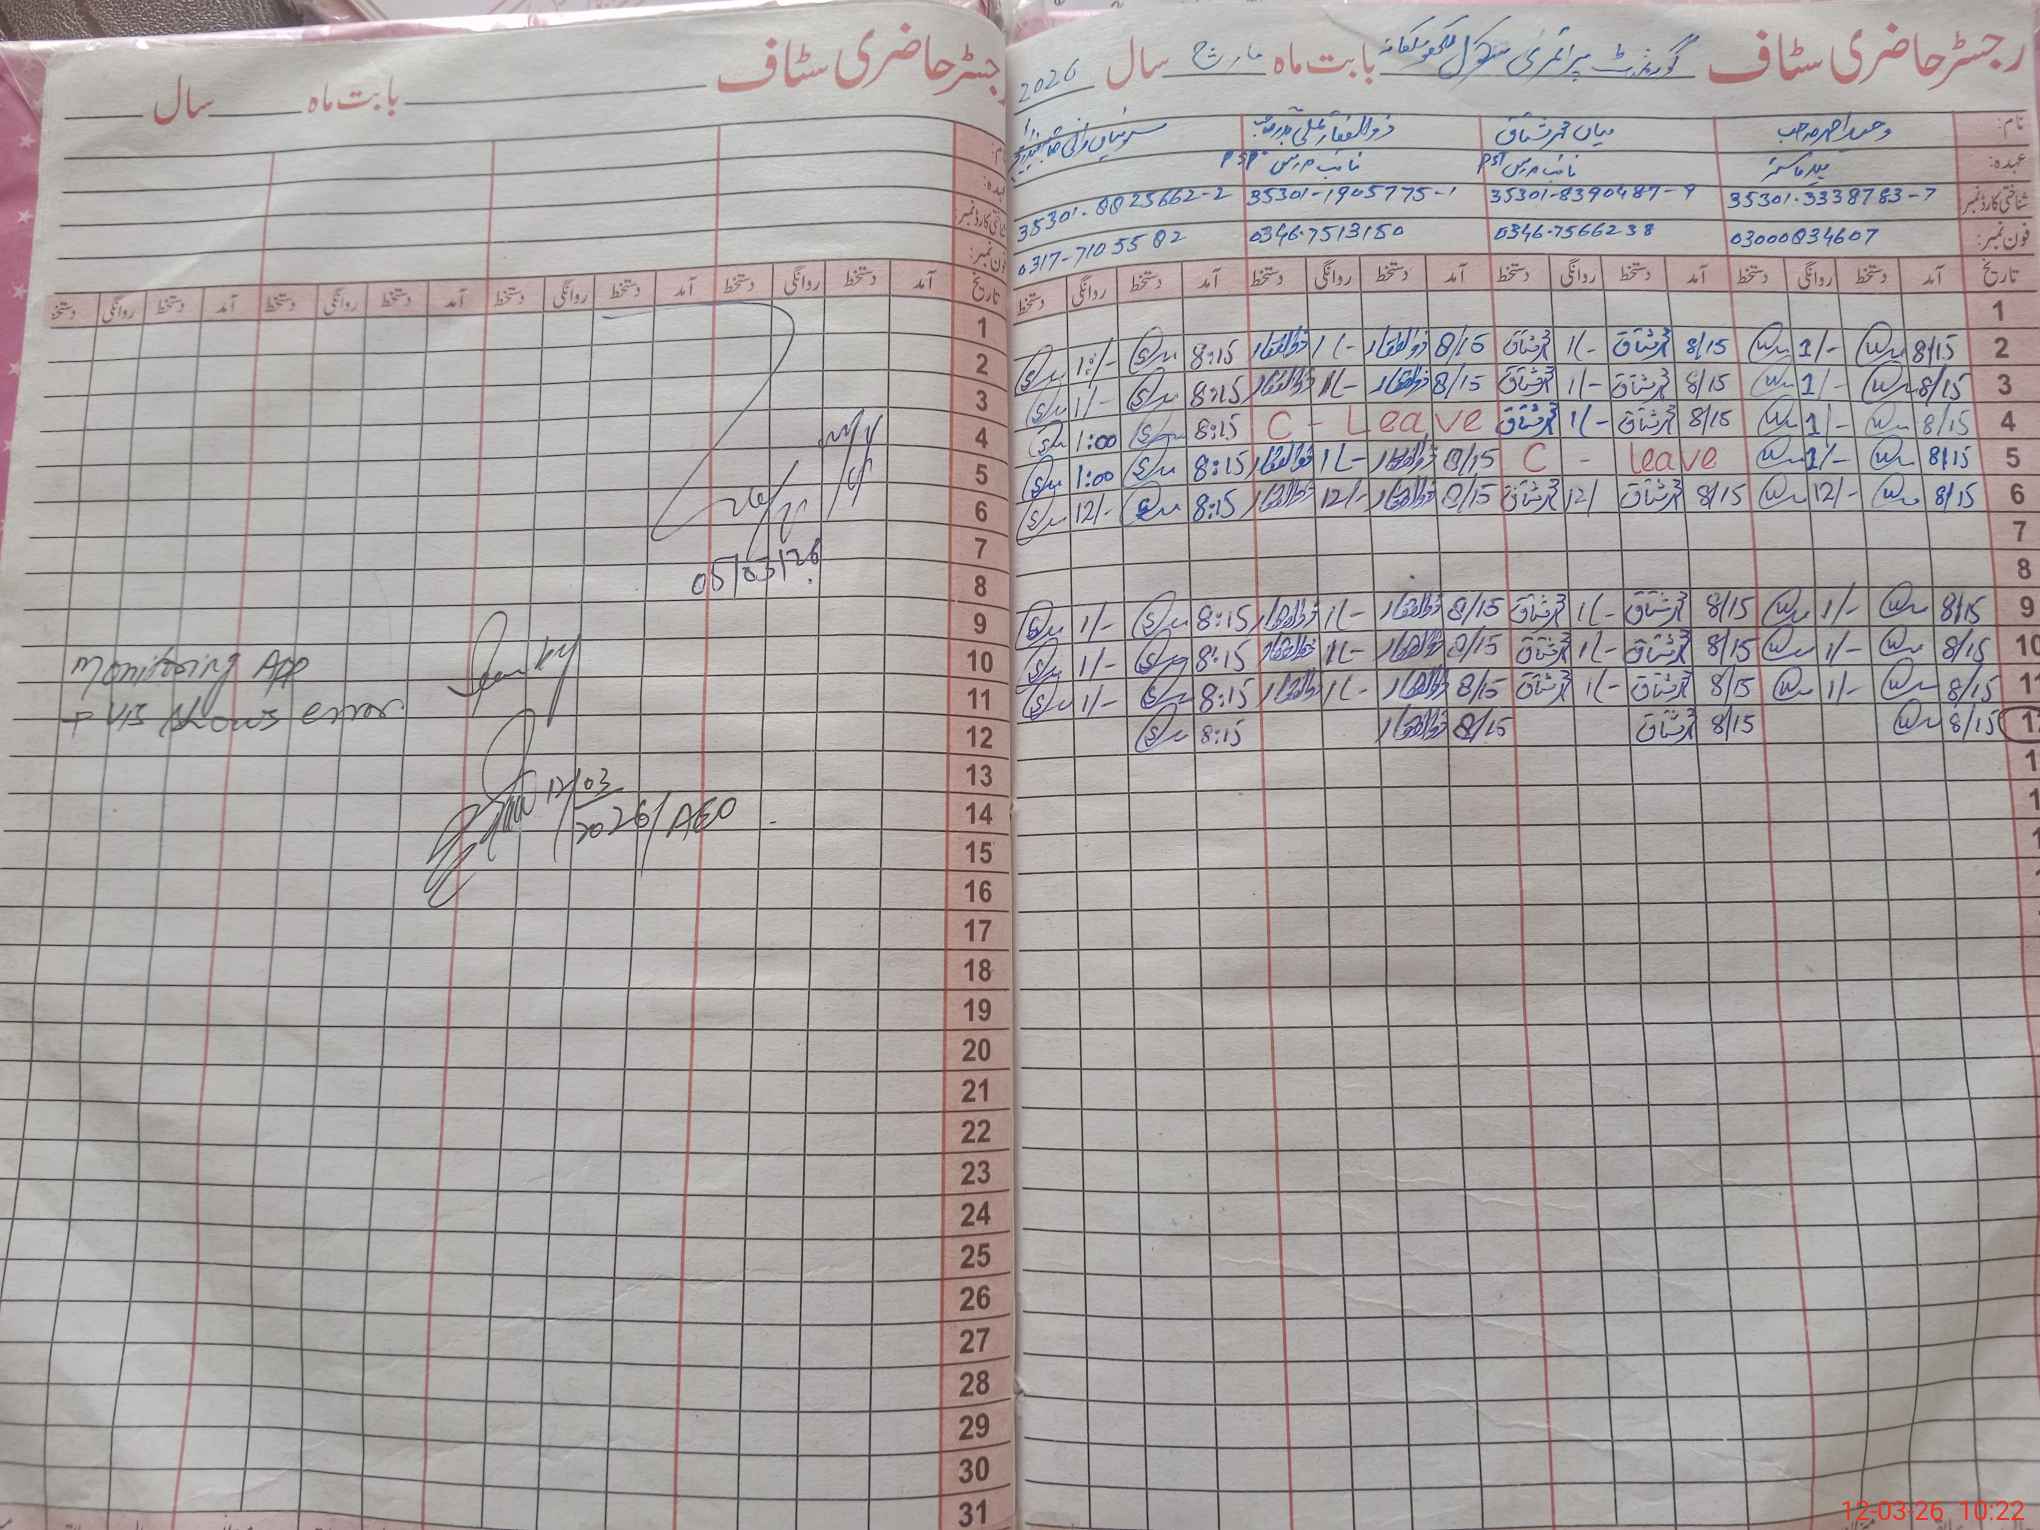 رجسٹر حاضری سٹاف گورنمنٹ پرائمری سکول بابت ماہ مارچ سال 2026
نام: وحید احمد صاحب میاں محمد مشتاق ذوالفقار علی
عہدہ: ہیڈ ماسٹر نائب مدرس PST نائب مدرس PST
شناختی کارڈ نمبر: 35301-3338783-7 35301-8390487-9 35301-1905775-1 35301-8825662-2
فون نمبر: 03000834607 0346-7566238 0346-7513150 0317-7105582
تاریخ آمد دستخط روانگی دستخط آمد دستخط روانگی دستخط آمد دستخط روانگی دستخط آمد دستخط روانگی دستخط
1
2 8/15 1/- 8/15 مشتاق 1/- مشتاق 8/15 ذوالفقار 1/- ذوالفقار 8:15 1:/-
3 8/15 1/- 8/15 مشتاق 1/- مشتاق 8/15 ذوالفقار 1/- ذوالفقار 8:15 1/-
4 8/15 1/- 8/15 مشتاق 1/- مشتاق C - Leave 8:15 1:00
5 8/15 1/- C - leave 8/15 ذوالفقار 1/- ذوالفقار 8:15 1:00
6 8/15 12/- 8/15 مشتاق 12/ مشتاق 8/15 ذوالفقار 12/- ذوالفقار 8:15 12/-
7
8
9 8/15 1/- 8/15 مشتاق 1/- مشتاق 8/15 ذوالفقار 1/- ذوالفقار 8:15 1/-
10 8/15 1/- 8/15 مشتاق 1/- مشتاق 8/15 ذوالفقار 1/- ذوالفقار 8:15 1/-
11 8/15 1/- 8/15 مشتاق 1/- مشتاق 8/15 ذوالفقار 1/- ذوالفقار 8:15 1/-
8/15 8/15 مشتاق 8/15 ذوالفقار 8:15
12-03-26 10:22
رجسٹر حاضری سٹاف بابت ماہ سال
نام:
عہدہ:
شناختی کارڈ نمبر:
فون نمبر:
تاریخ آمد دستخط روانگی دستخط آمد دستخط روانگی دستخط آمد دستخط روانگی دستخط آمد دستخط روانگی دستخط
1
2
3
4
5
6
7
05/03/26
8
9
10
Monitoring App
11
+ VIS shows error
12
13
12/03
14
2026/AEO
15
16
17
18
19
20
21
22
23
24
25
26
27
28
29
30
31